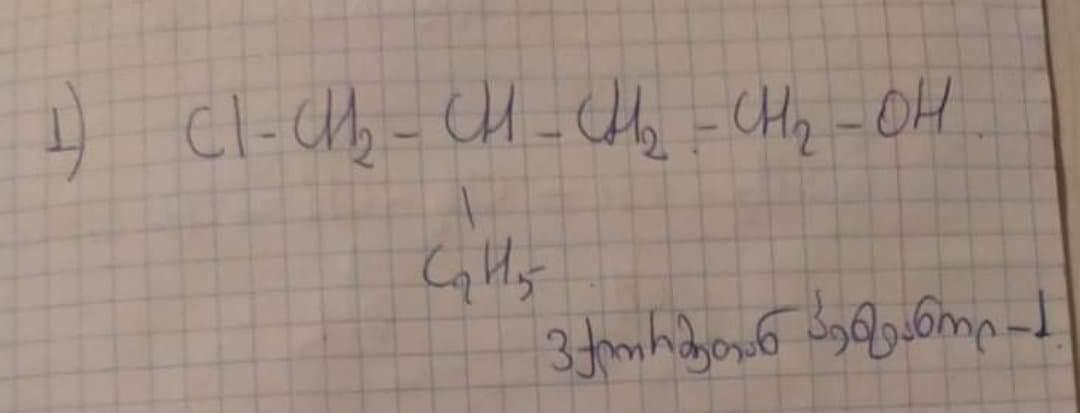 1) Cl-CH₂-CH-CH₂-CH₂-OH
C₂H₅
3ქლორმეთან პენტანოლ-1